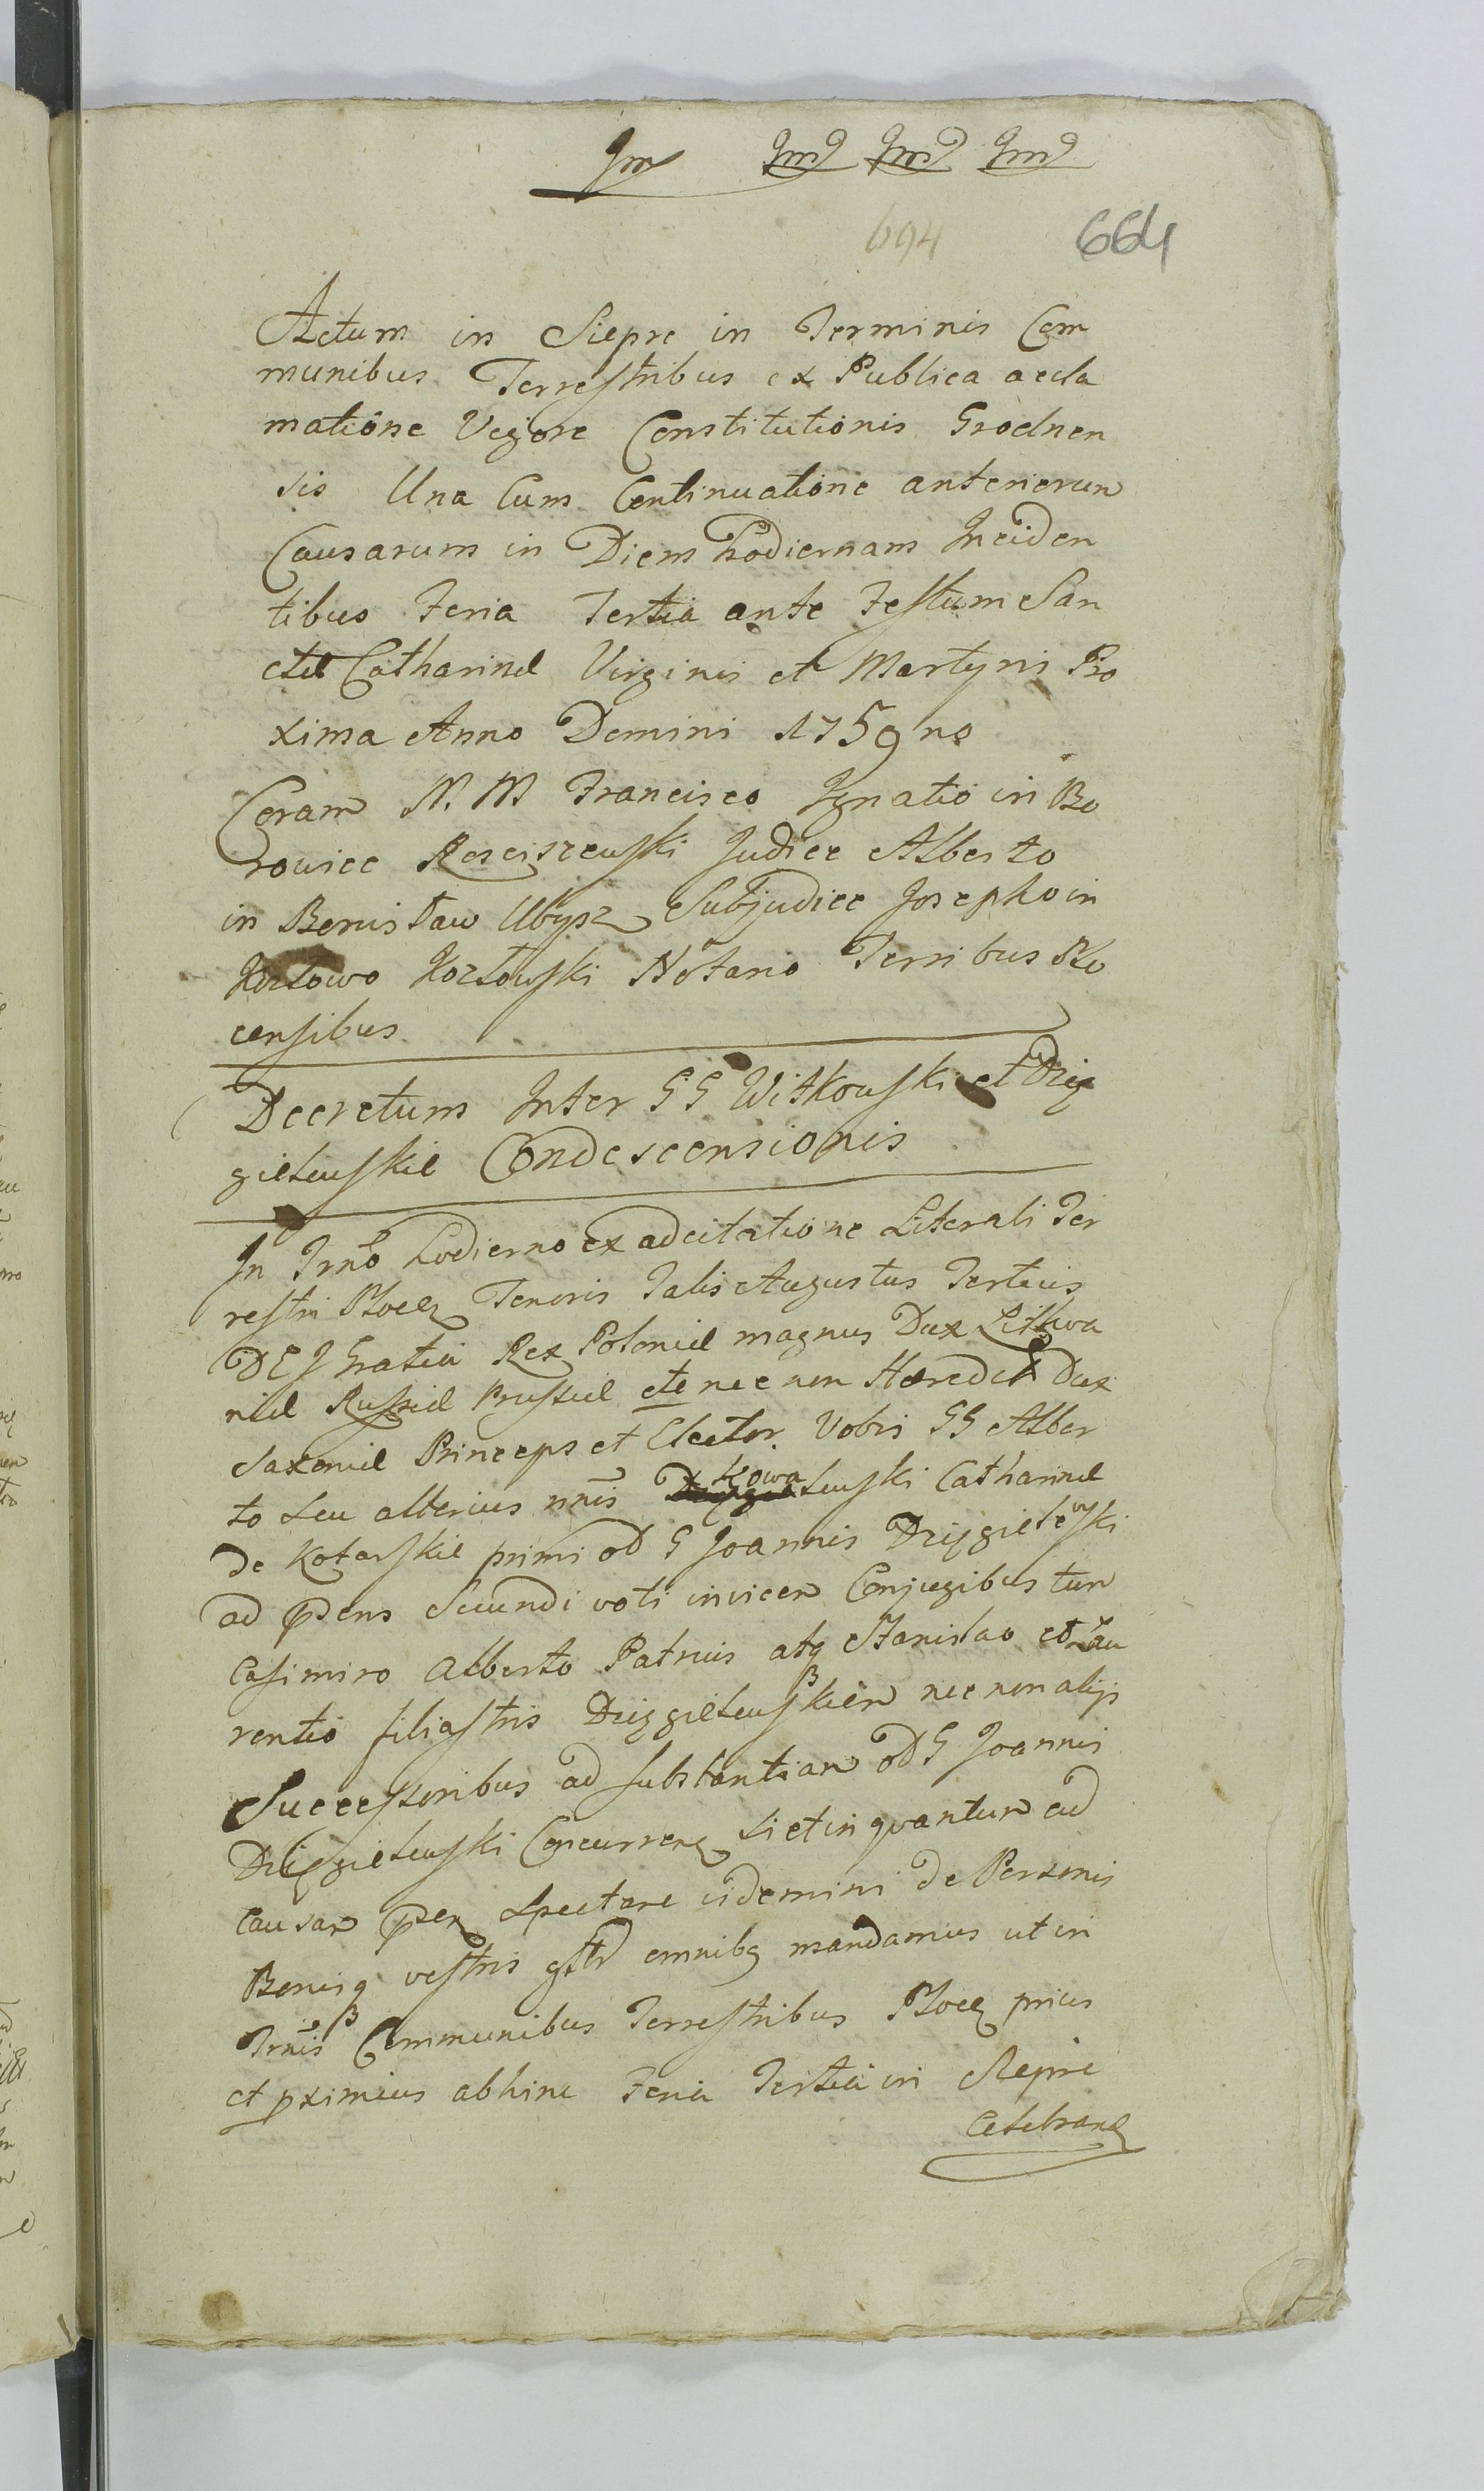 Jmd Jmd Jmd
694 664
Actum in Siepre in Terminis Com
munibus Terrestribus ex Publica accla
matione Vigore Constitutionis Grodnen
sis Una Cum Continuatione anteriorum
Causarum in Diem hodiernam Inciden
tibus Feria Tertia ante Festum San
ctæ Catharinæ Virginis et Martyris Pro
xima Anno Domini 1759no
Coram N. M Francisco Ignatio in Bo
rowice Rosciszewski Judice Alberto
in Bonisław Ubysz Subjudice Josepho in
Kozłowo Kozłowski Notario Terribus Plo
censibus
Decretum Inter GG Witkowski et Dzię
gielewskie Condescensionis
In Trno hodierno ex adcitatione Literali Ter
restri Plocen Tenoris Talis Augustus Tertius
DEJ Gratia Rex Poloniæ magnus Dux Lithva
niæ Russiæ Prussiæ etc nec non Hæredit Dux
Saxoniæ Princeps et Elector. Vobis GG Alber
to seu alterius nnis Witkowski Catharinæ
de Kotarskie primi od G Joannis Dzięgielewski
ad psens Secundi voti invicem Conjugibus tum
Casimiro Alberto Patruis atq Stanislao et Lau
rentio filiastris Dzięgielewskiem nec non alijs
Successoribus ad substantiam od G Joannis
Dzięgielewski Concurren sietinqvantum ad
Causam psen spectare videmini de Personis
Bonisq vestris gltr omnibq mandamus ut in
Trnis Communibus Terrestribus Plocen prius
et pximius abhinc Feria Tertia in Siepre
Celebran